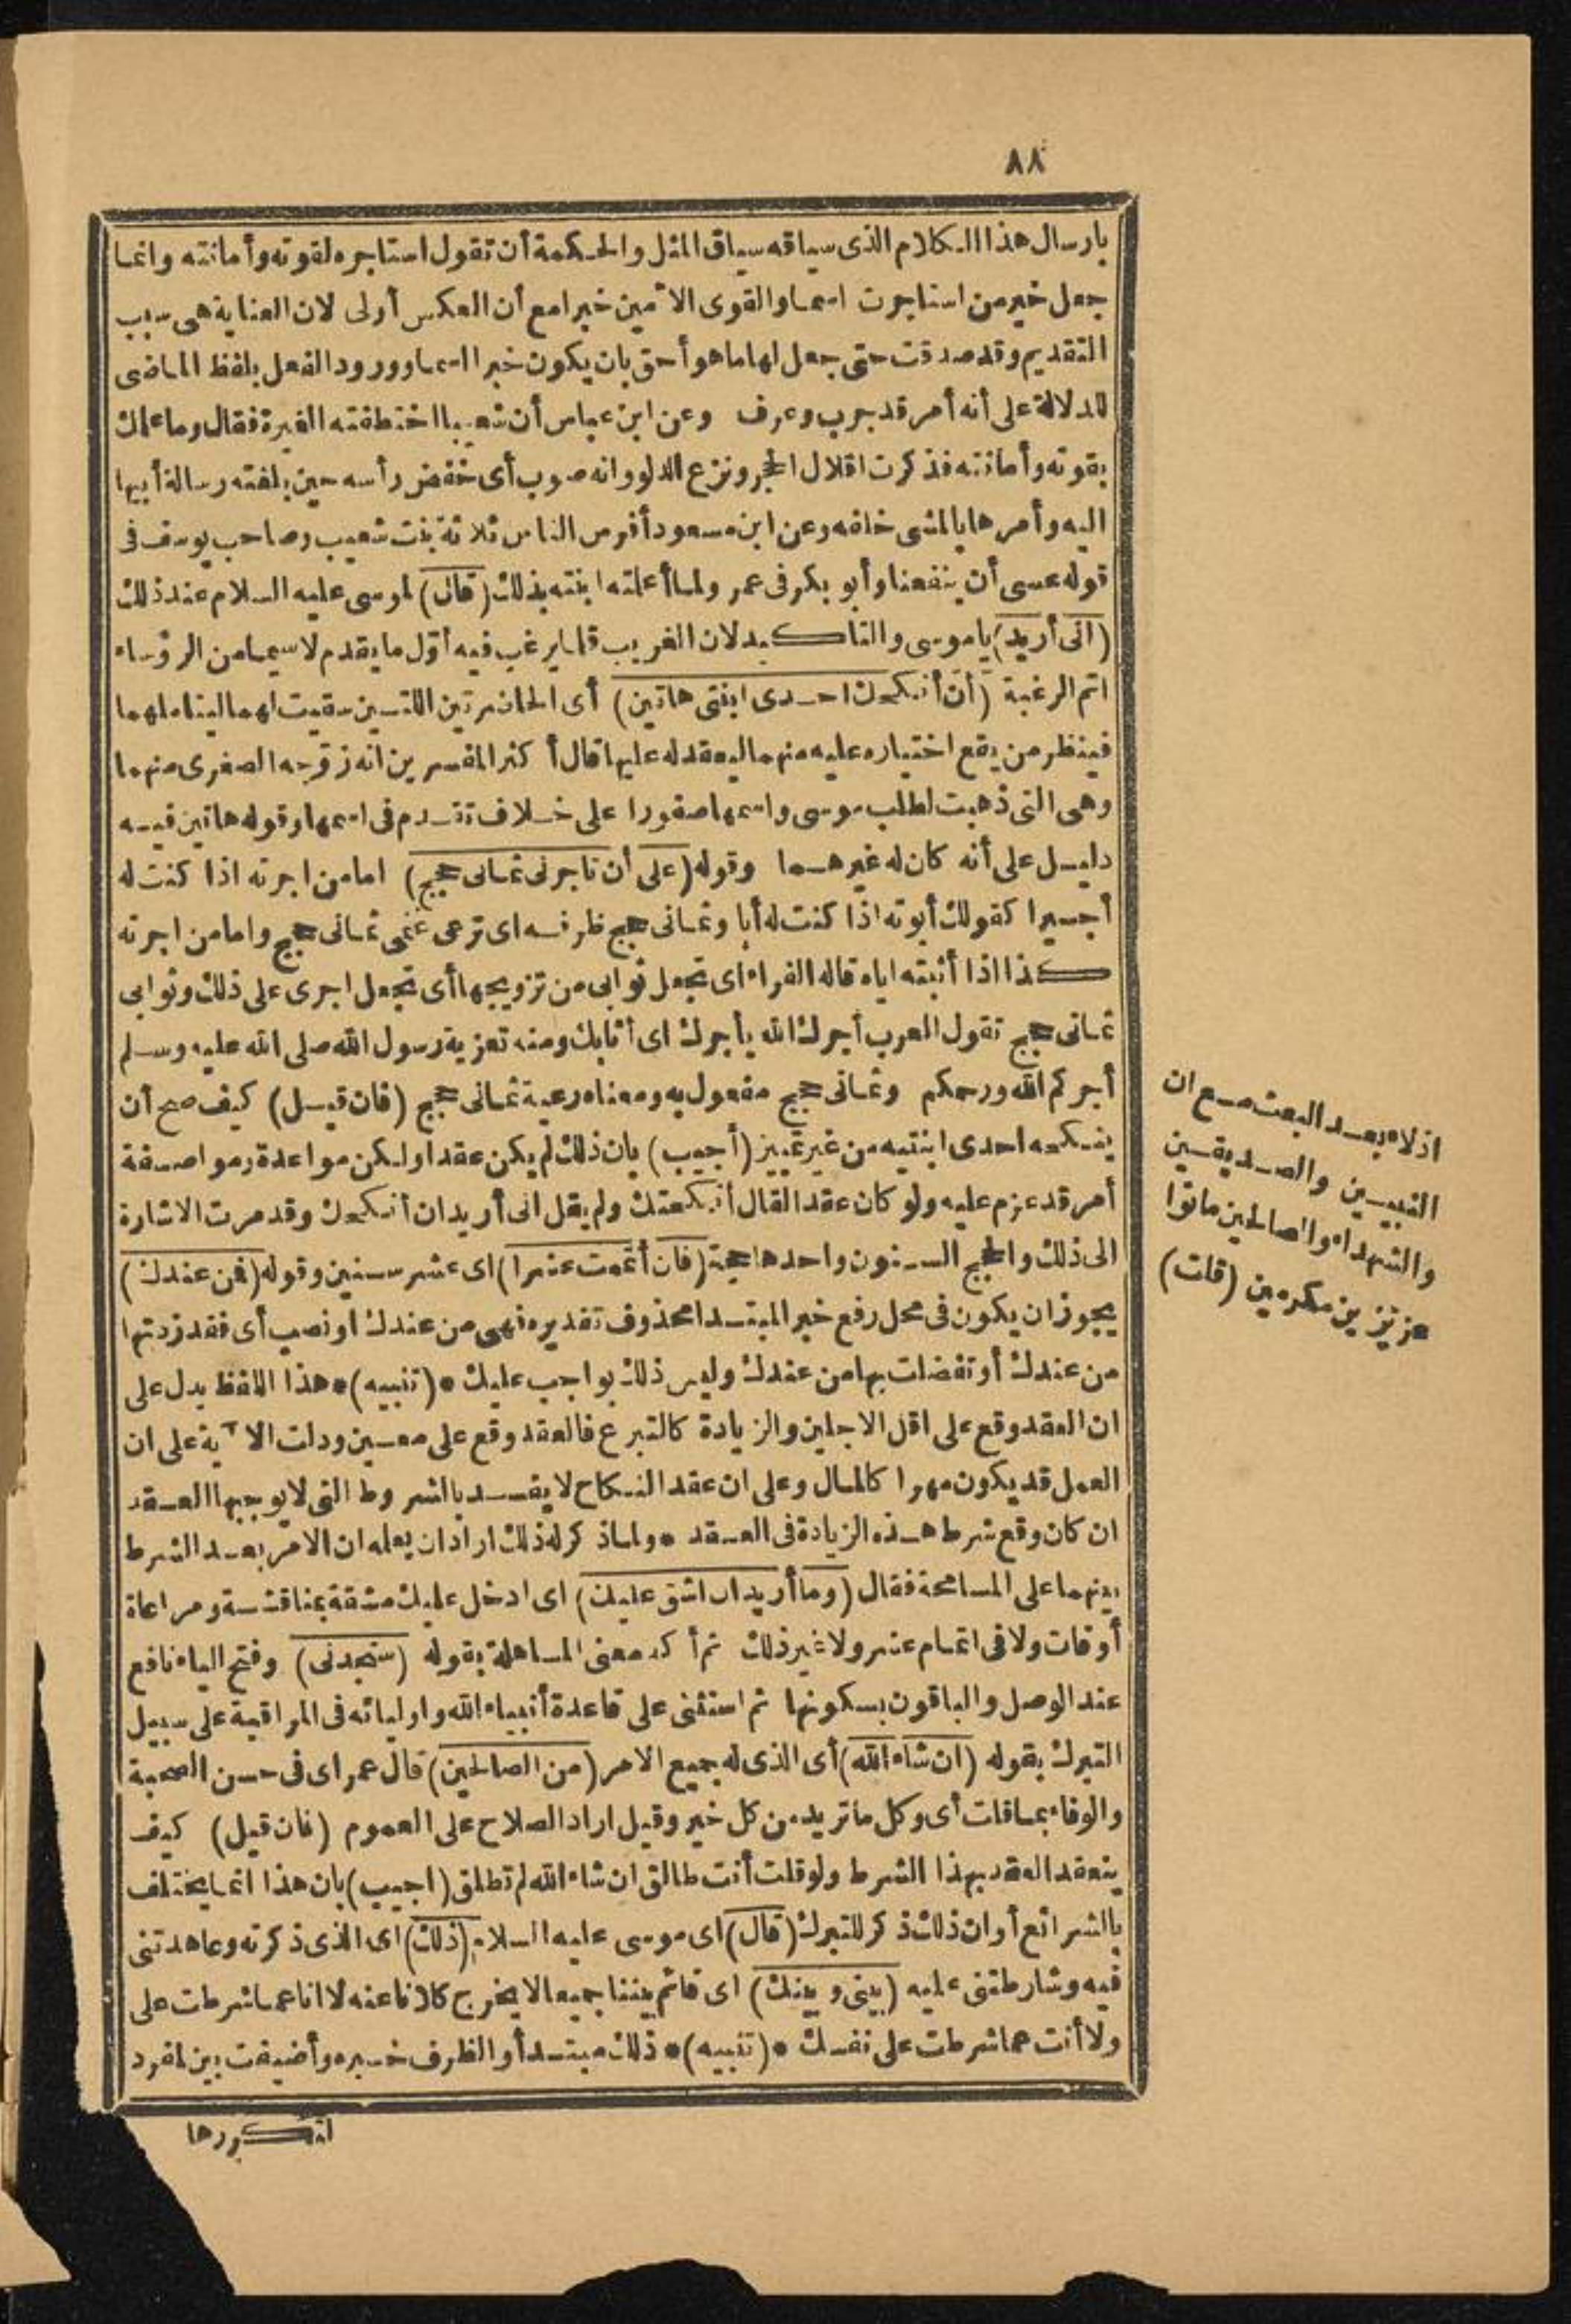 ٨٨
بارسال هذا الكلام الذى سياقه سياق المثل والحكمة أن تقول استاجره لقوته وأمانته وانما
جعل خير من استاجرت اسما والقوى الأمين خبرا مع أن العكس أولى لان العناية هى سبب
التقديم وقد صدقت حتى جعل لها ما هو أحق بان يكون خبرا اسما وورود الفعل بلفظ الماضى
للدلالة على أنه أمر قد جرب وعرف وعن ابن عباس أن شعيبا اختطفته الغيرة فقال وما علمك
بقوته وأمانته فذكرت اقلال الحجر ونزع الدلو وانه صوب أى خفض رأسه حين بلغته رسالة أبيها
اليه وأمرها بالمشى خلفه وعن ابن مسعود أفرس الناس ثلاثة بنت شعيب وصاحب يوسف فى
قوله عسى أن ينفعنا وأبو بكر فى عمر ولما أعلمته ابنته بذلك (قال) لموسى عليه السلام عند ذلك
(انى أريد) ياموسى والتاكيد لان الغريب قلما يرغب فيه أول ما يقدم لاسيما من الرؤساء
اتم الرغبة (أن أنكحك احدى ابنتى هاتين) أى الحاضرتين اللتين سقيت لهما ليتاملهما
فينظر من يقع اختياره عليه منهما ليعقد له عليها قال أكثر المفسرين انه زوجه الصغرى منهما
وهى التى ذهبت لطلب موسى واسمها صفورا على خلاف تقدم فى اسمها وقوله هاتين فيه
دليل على أنه كان له غيرهما وقوله (على أن تاجرنى ثمانى حجج) اما من اجرته اذا كنت له
أجيرا كقولك أبوته اذا كنت له أبا وثمانى حجج ظرفه اى ترعى غنمى ثمانى حجج واما من اجرته
كذا اذا أثبته اياه قاله الفراء أى تجعل ثوابى من تزويجها أى تجعل اجرى على ذلك وثوابى
ثمانى حجج تقول العرب أجرك الله يأجرك اى أثابك ومنه تعزية رسول الله صلى الله عليه وسلم
أجركم الله ورحمكم وثمانى حجج مفعول به ومعناه رعية ثمانى حجج (فان قيل) كيف صح أن
ينكحه احدى ابنتيه من غير تمييز (أجيب) بان ذلك لم يكن عقدا ولكن مواعدة ومواصفة
أمر قد عزم عليه ولو كان عقدا لقال أنكحتك ولم يقل انى أريد ان أنكحك وقد مرت الاشارة
الى ذلك والحجج السنون واحدها حجة (فان أتممت عشرا) اى عشر سنين وقوله (فمن عندك)
يجوز ان يكون فى محل رفع خبر المبتدا محذوف تقديره فهى من عندك او نصب أى فقد زدتها
من عندك أو تفضلت بها من عندك وليس ذلك بواجب عليك * (تنبيه) * هذا اللفظ يدل على
ان العقد وقع على اقل الاجلين والزيادة كالتبرع فالعقد وقع على معين ودلت الآية على ان
العمل قد يكون مهرا كالمال وعلى ان عقد النكاح لا يفسد بالشروط التى لا يوجبها العقد
ان كان وقع شرط هذه الزيادة فى العقد * ولما ذكر له ذلك اراد ان يعلمه ان الامر بعد الشرط
بينهما على المسامحة فقال (وما أريد ان اشق عليك) اى ادخل عليك مشقة بمناقشة ومراعاة
أوقات ولا فى اتمام عشر ولا غير ذلك ثم أكد معنى المساهلة بقوله (ستجدنى) وفتح الياء نافع
عند الوصل والباقون بسكونها ثم استثنى على قاعدة أنبياء الله واوليائه فى المراقبة على سبيل
التبرك بقوله (ان شاء الله) أى الذى له جميع الامر (من الصالحين) قال عمر اى فى حسن الصحبة
والوفاء بما قلت أى وكل ما تريد من كل خير وقيل اراد الصلاح على العموم (فان قيل) كيف
ينعقد العقد بهذا الشرط ولو قلت أنت طالق ان شاء الله لم تطلق (اجيب) بان هذا انما يختلف
بالشرائع أو ان ذلك ذكر للتبرك (قال) اى موسى عليه السلام (ذلك) اى الذى ذكرته وعاهدتنى
فيه وشارطتنى عليه (بينى وبينك) اى قائم بيننا جميعا لا يخرج كلانا عنه لا انا عما شرطت على
ولا أنت عما شرطت على نفسك * (تنبيه) * ذلك مبتدأ والظرف خبره وأضيفت بين لمفرد
لتكررها
اذلاء بعد البعث مع ان
النبيين والصديقين
والشهداء والصالحين ماتوا
عزيزين مكرمين (قلت)